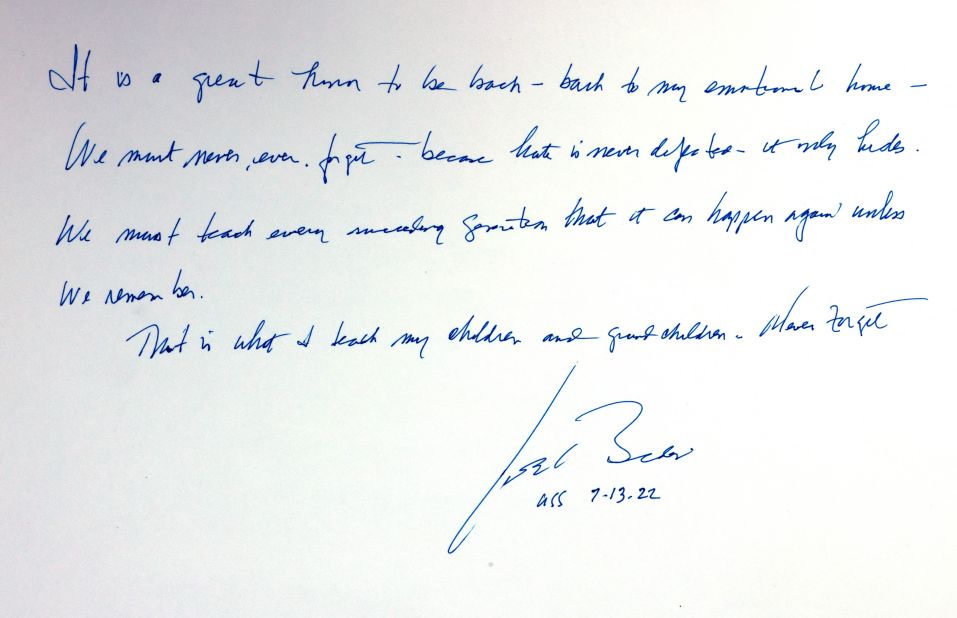 It is a great honor to be back - back to my emotional home -
We must never, ever, forget - because hate is never defeated - it only hides.
We must teach every succeeding generation that it can happen again unless
We remember.
That is what I teach my children and grandchildren - Never Forget
7-13-22